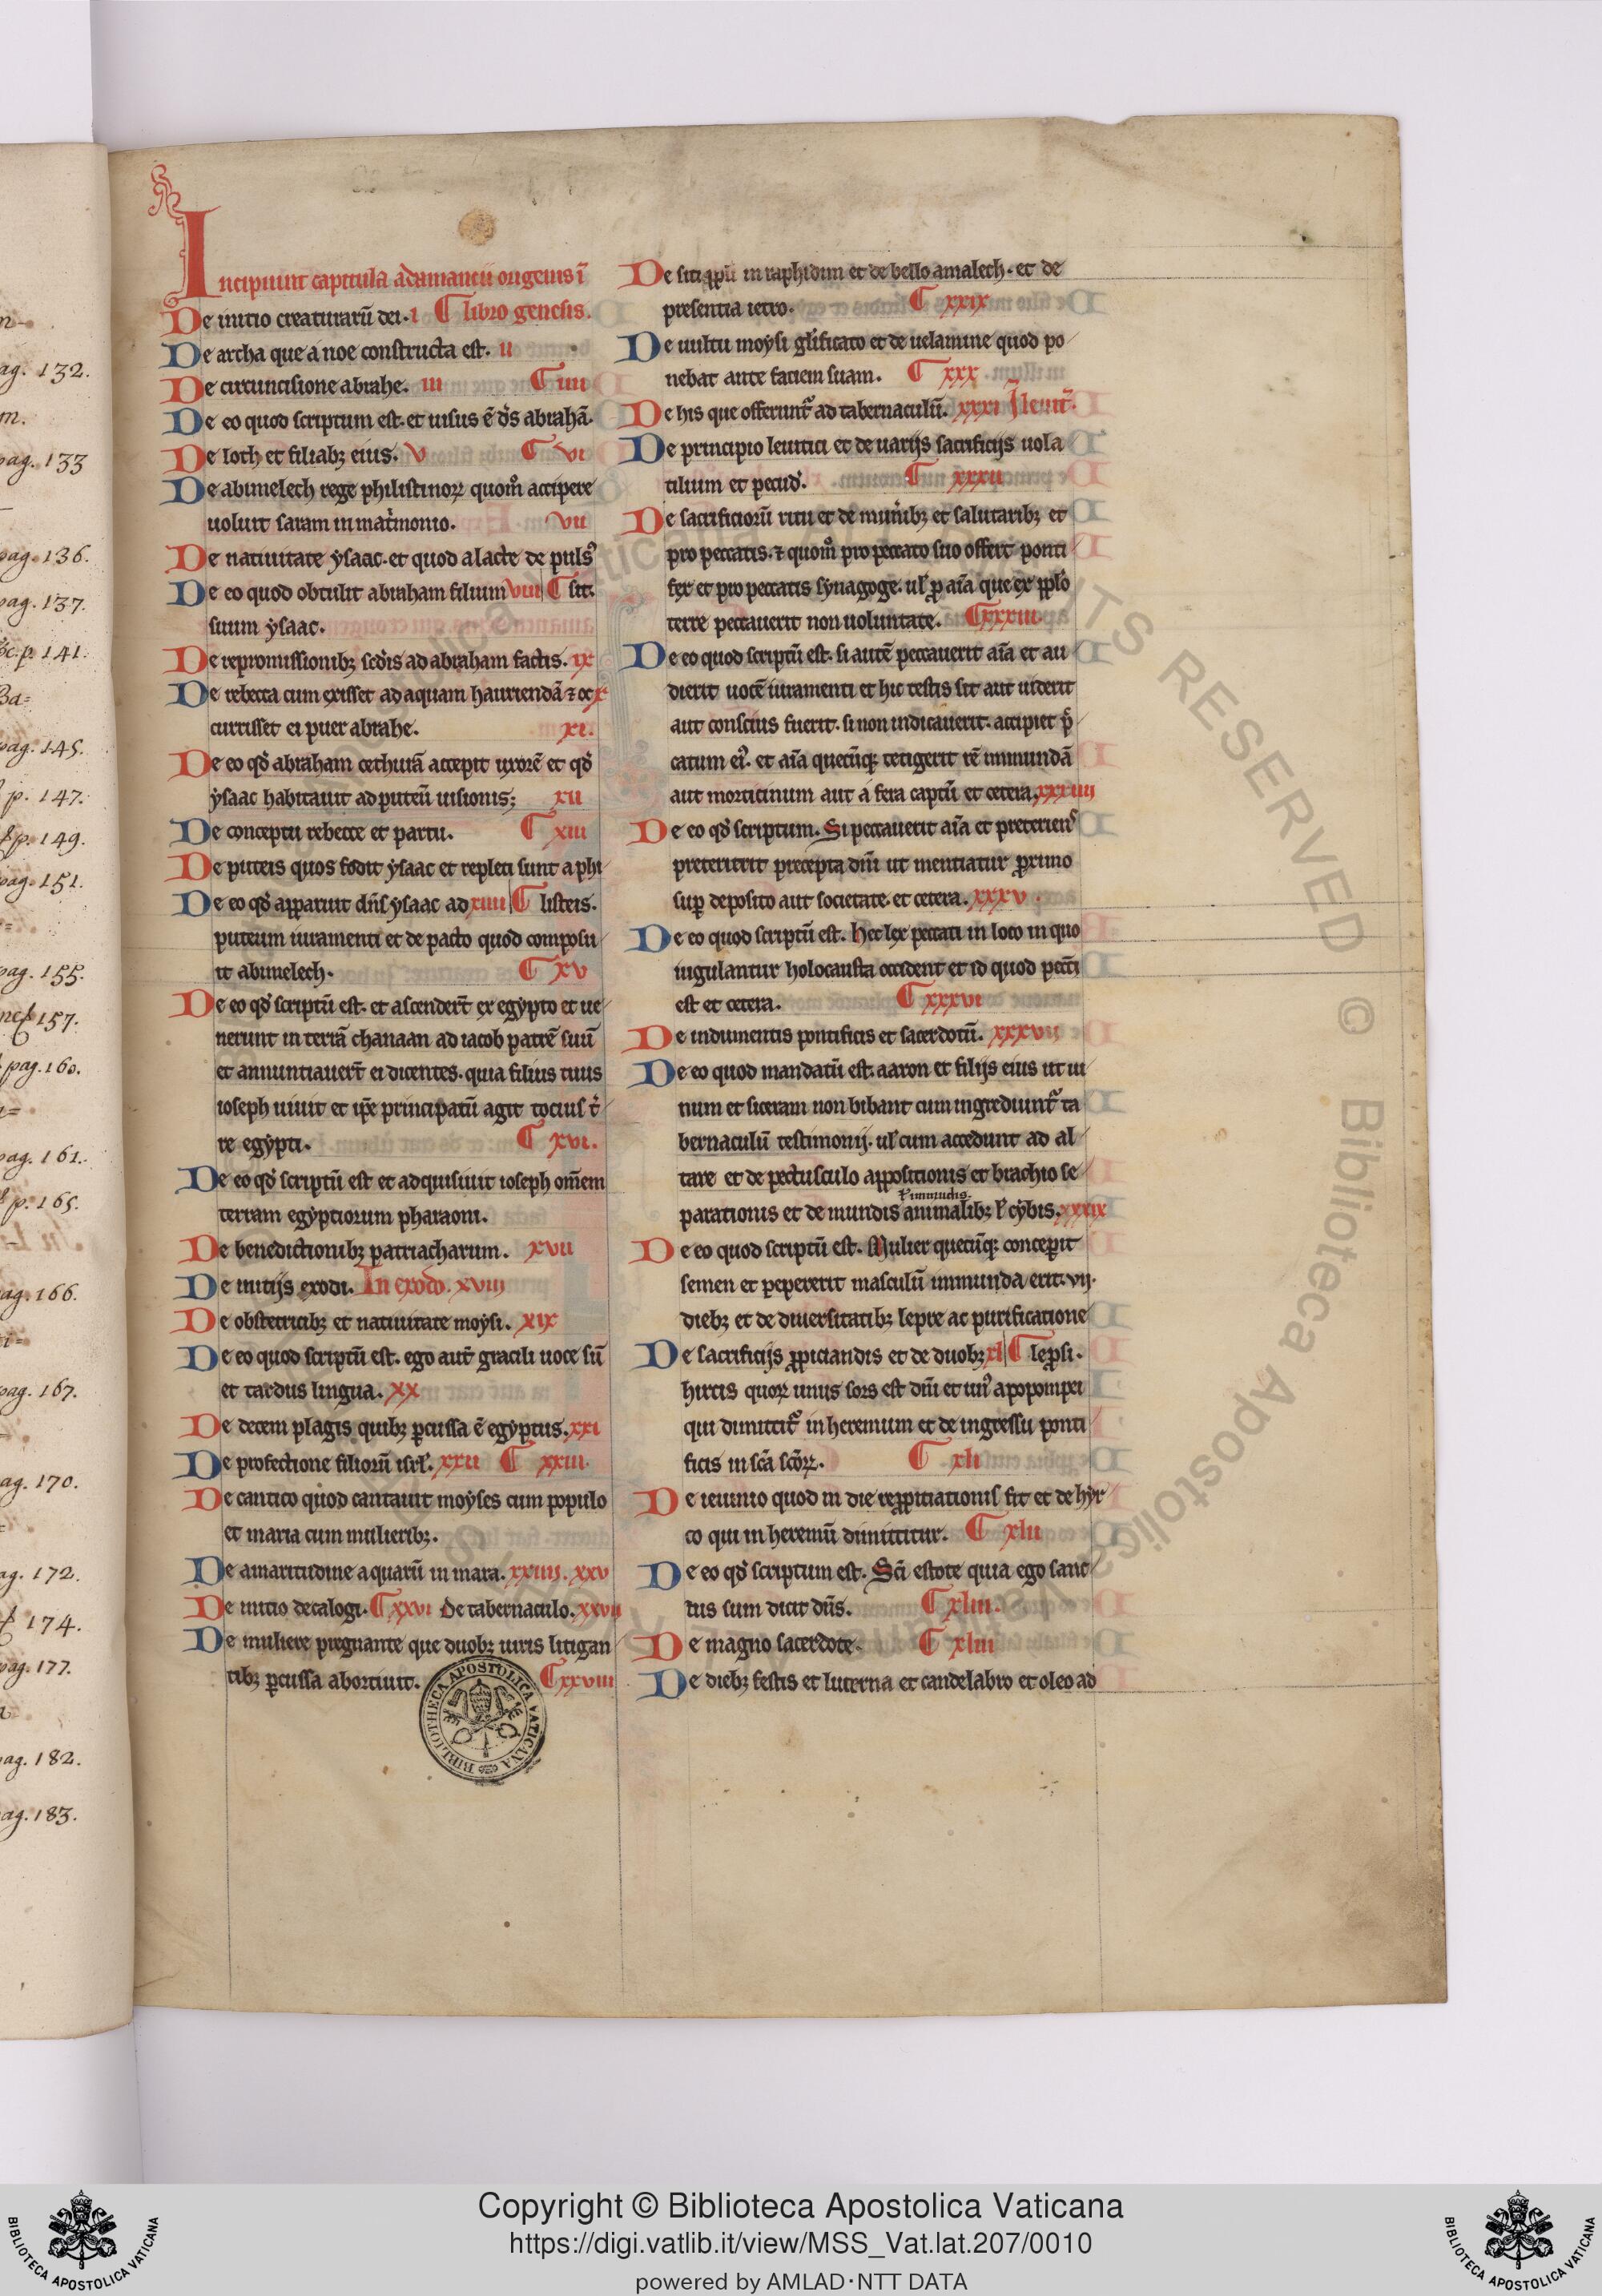 n-
ag. 132.
m.
pag. 133
pag. 136.
pag. 137.
p. 141.
Ba=
pag. 145.
p. 147.
p. 149.
pag. 151.
pag. 155.
157.
pag. 160.
pag. 161.
p. 165.
ag. 166.
pag. 167.
ag. 170.
ag. 172.
174.
pag. 177.
ag. 182.
ag. 183.
Incipiunt capitula adamancii origenis ī
De initio creaturarū dei. i ⁋ libro genesis.
De archa que a noe constructa est. ii
De circuncisione abrahe. iii ⁋ iiii
De eo quod scriptum est. et uisus ē d̄s abrahā.
De loth et filiabꝫ eius. v ⁋ vi
De abimelech rege philistinoꝝ quom̊ accipere
uoluit saram in mat̾monio. vii
De natiuitate ysaac. et quod a lacte de pulsꝰ
De eo quod obtulit abraham filium viii ⁋ sit.
suum ysaac.
De repromissionibꝫ sc̄dis ad abraham factis. ix
De rebecca cum exisset ad aquam hauriendā ⁊ oc x
currisset ei puer abrahe. xi.
De eo qđ abraham cethurā accepit uxorē et qđ
ysaac habitauit ad puteū uisionis; xii
De conceptu rebecce et partu. ⁋ xiii
De puteis quos fodit ysaac et repleti sunt a phi
De eo qđ apparuit dn̄s ysaac ad xiiii ⁋ listeis.
puteum iuramenti et de pacto quod composu
it abimelech. ⁋ xv
De eo qđ scriptū est. et ascender̄t ex egypto et ue
nerunt in terrā chanaan ad iacob patrē suū
et annuntiauer̄t ei dicentes. quia filius tuus
ioseph uiuit et ip̄e principatū agit tocius t̾
re egypti. ⁋ xvi.
De eo qđ scriptū est et adquisiuit ioseph om̄em
terram egyptiorum pharaoni.
De benedictionibꝫ patriacharum. xvii
De initijs exodi. In exodo. xviii
De obstetricibꝫ et natiuitate moysi. xix
De eo quod scriptū est. ego aut̄ gracili uoce sū
et tardus lingua. xx
De decem plagis quibꝫ ꝑcussa ē egyptus. xxi
De profectione filiorū isrl̄. xxii ⁋ xxiii.
De cantico quod cantauit moyses cum populo
et maria cum mulieribꝫ.
De amaritudine aquarū in mara. xxiiii. xxv
De initio decalogi. ⁋ xxvi De tabernaculo. xxvii
De muliere pregnante que duobꝫ uiris litigan
tibꝫ ꝑcussa abortiuit. ⁋ xxviii
BIBLIOTHECA APOSTOLICA VATICANA
De siti ppl̄i in raphidim et de bello amalech. et de
presentia ietro. ⁋ xxix
De uultu moysi gl̄ificato et de uelamine quod po
nebat ante faciem suam. ⁋ xxx
De his que offerunt᷑ ad tabernaculū. xxxi I leuit̄.
De principio leuitici et de uarijs sacrificijs uola
tilium et pecud̾. ⁋ xxxii
De sacrificiorū ritu et de mun̾ibꝫ et salutaribꝫ et
pro peccatis. ⁊ quom̊ pro peccato suo offert ponti
fex et pro peccatis synagoge. ul̄ ꝓ aīa que ex pplo
terre peccauerit non uoluntate. ⁋ xxxiii.
De eo quod scriptū est. si autē peccauerit aīa et au
dierit uocē iuramenti et hic testis sit aut uiderit
aut conscius fuerit. si non indicauerit. accipiet p̄
catum eiꝰ. et aīa quecūqꝫ tetigerit rē immundā
aut morticinum aut a fera captū et cetera. xxxiiii
De eo qđ scriptum. Si peccauerit aīa et preteriens
preterierit precepta dn̄i ut mentiatur ꝓximo
suꝑ deposito aut societate. et cetera. xxxv.
De eo quod scriptū est. Hec lex peccati in loco in quo
iugulantur holocausta occident et id quod pecc̄i
est et cetera. ⁋ xxxvi
De indumentis pontificis et sacerdotū. xxxvii
De eo quod mandatū est. aaron et filijs eius ut ui
num et siceram non bibant cum ingrediunt᷑ ta
bernaculū testimonij. ul̄ cum accedunt ad al
tare et de pectusculo appositionis et brachio se
ł immūdis.
parationis et de mundis animalibꝫ ł cybis. xxxix
De eo quod scriptū est. Mulier quecūqꝫ conceperit
semen et pepererit masculū immunda erit. vij.
diebꝫ et de diuersitatibꝫ lepre ac purificatione
De sacrificijs ꝓpiciandis et de duobꝫ xl ⁋ leprosi.
hircis quoꝝ unus sors est dn̄i et unꝰ apopompei
qui dimittit᷑ in heremum et de ingressu ponti
ficis in sc̄a sc̄oꝝ. ⁋ xli
De ieiunio quod in die repropitiationis fit et de hyr
co qui in heremū dimittitur. ⁋ xlii
De eo qđ scriptum est. Sc̄i estote quia ego sanc
tus sum dicit dn̄s. ⁋ xliii.
De magno sacerdote. ⁋ xliii
De diebꝫ festis et lucerna et candelabro et oleo ad
Copyright © Biblioteca Apostolica Vaticana
https://digi.vatlib.it/view/MSS_Vat.lat.207/0010
powered by AMLAD·NTT DATA
BIBLIOTECA APOSTOLICA VATICANA
BIBLIOTECA APOSTOLICA VATICANA